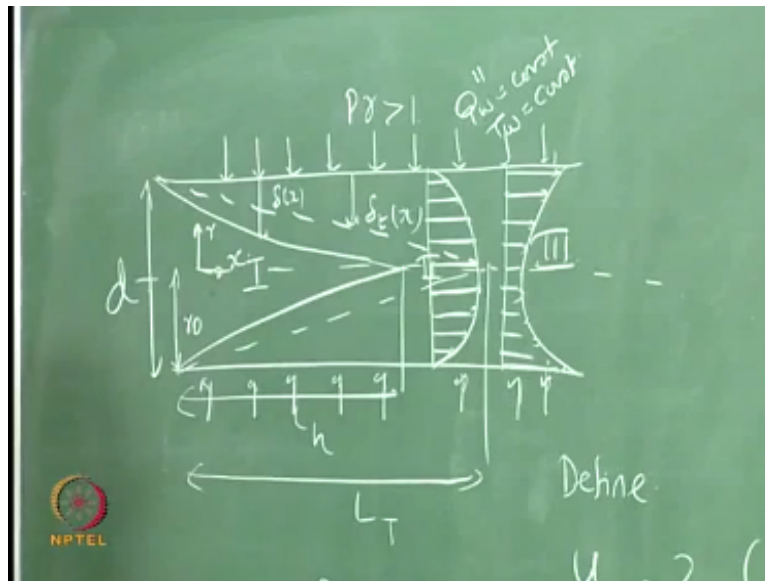 Pr > 1
Q''w = const
Tw = const
δ(x)
δt(x)
r
x
I
II
III
d
r0
Lh
LT
Define
NPTEL